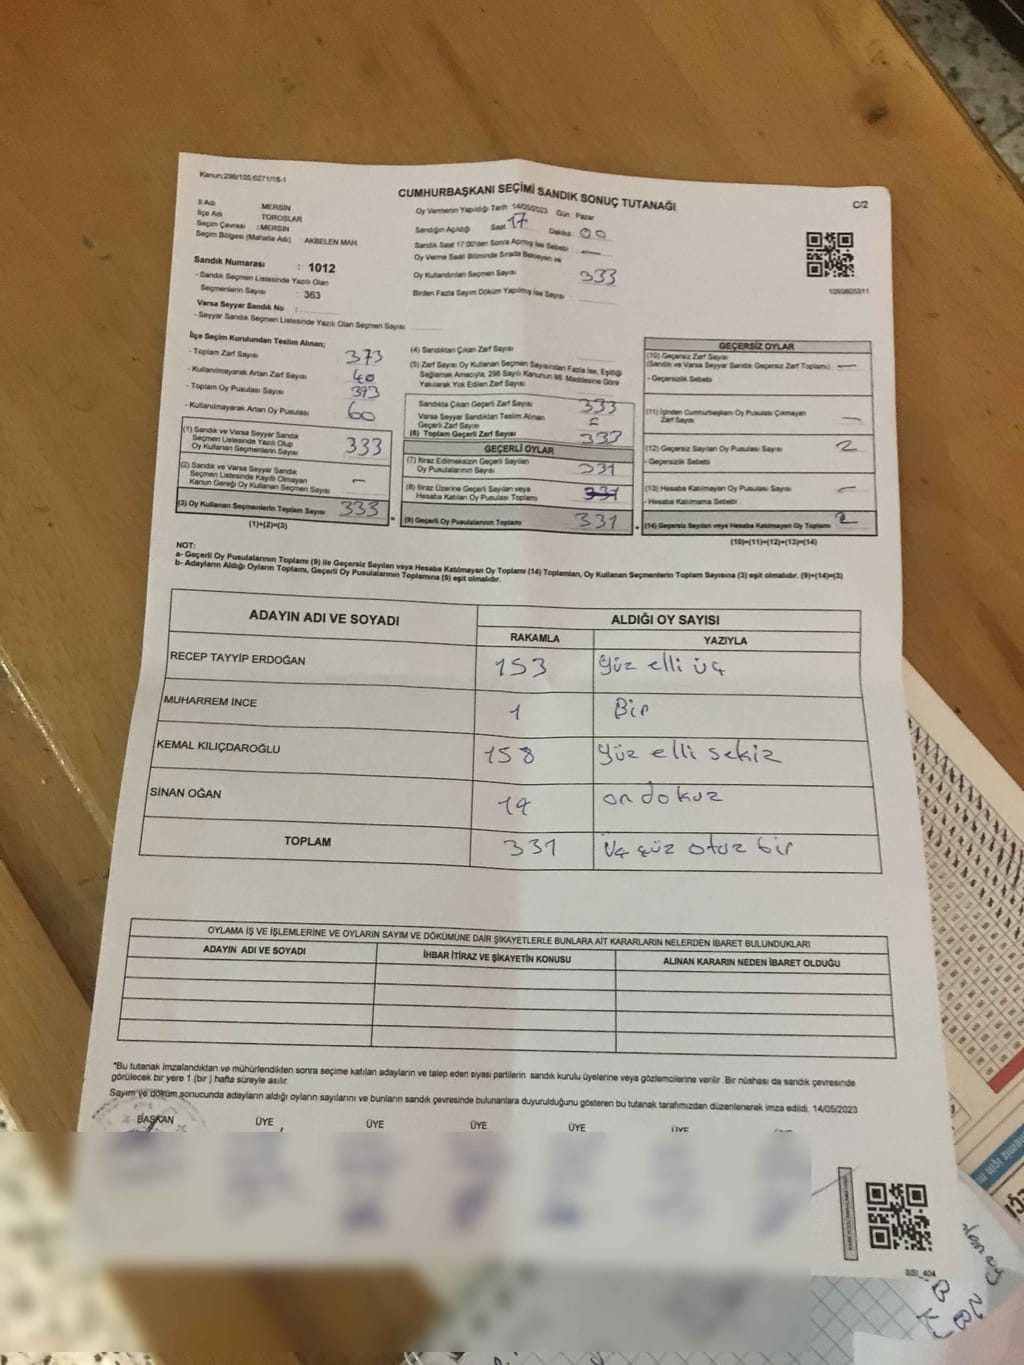 Kanun:298/105;6271/16-1
CUMHURBAŞKANI SEÇİMİ SANDIK SONUÇ TUTANAĞI
C/2
İl Adı : MERSİN
İlçe Adı : TOROSLAR
Seçim Çevresi : MERSİN
Seçim Bölgesi (Mahalle Adı) : AKBELEN MAH.
Sandık Numarası : 1012
- Sandık Seçmen Listesinde Yazılı Olan
Seçmenlerin Sayısı : 363
Varsa Seyyar Sandık No :
- Seyyar Sandık Seçmen Listesinde Yazılı Olan Seçmen Sayısı
Oy Vermenin Yapıldığı Tarih :14/05/2023 Gün : Pazar
Sandığın Açıldığı Saat : 17 Dakika : 00
Sandık Saat 17:00'den Sonra Açmış İse Sebebi —
Oy Verme Saati Bitiminde Sırada Bekleyen ve
Oy Kullandırılan Seçmen Sayısı 333
Birden Fazla Sayım Döküm Yapılmış İse Sayısı
1090805311
İlçe Seçim Kurulundan Teslim Alınan;
- Toplam Zarf Sayısı 373
- Kullanılmayarak Artan Zarf Sayısı 40
- Toplam Oy Pusulası Sayısı 393
- Kullanılmayarak Artan Oy Pusulası 60
(1) Sandık ve Varsa Seyyar Sandık
Seçmen Listesinde Yazılı Olup
Oy Kullanan Seçmenlerin Sayısı 333
(2) Sandık ve Varsa Seyyar Sandık
Seçmen Listesinde Kayıtlı Olmayan
Kanun Gereği Oy Kullanan Seçmen Sayısı —
(3) Oy Kullanan Seçmenlerin Toplam Sayısı 333
(1)+(2)=(3)
(4) Sandıktan Çıkan Zarf Sayısı
(5) Zarf Sayısı Oy Kullanan Seçmen Sayısından Fazla İse, Eşitliği
Sağlamak Amacıyla; 298 Sayılı Kanunun 98. Maddesine Göre
Yakılarak Yok Edilen Zarf Sayısı
Sandıkta Çıkan Geçerli Zarf Sayısı 333
Varsa Seyyar Sandıktan Teslim Alınan
Geçerli Zarf Sayısı
(6) Toplam Geçerli Zarf Sayısı 333
GEÇERLİ OYLAR
(7) İtiraz Edilmeksizin Geçerli Sayılan
Oy Pusulalarının Sayısı 331
(8) İtiraz Üzerine Geçerli Sayılan veya
Hesaba Katılan Oy Pusulası Toplamı 331
(9) Geçerli Oy Pusulalarının Toplamı 331
GEÇERSİZ OYLAR
(10) Geçersiz Zarf Sayısı
(Sandık ve Varsa Seyyar Sandık Geçersiz Zarf Toplamı) —
- Geçersizlik Sebebi
(11) İçinden Cumhurbaşkanı Oy Pusulası Çıkmayan
Zarf Sayısı —
(12) Geçersiz Sayılan Oy Pusulası Sayısı 2
- Geçersizlik Sebebi
(13) Hesaba Katılmayan Oy Pusulası Sayısı —
- Hesaba Katılmama Sebebi
(14) Geçersiz Sayılan veya Hesaba Katılmayan Oy Toplamı 2
(10)+(11)+(12)+(13)=(14)
NOT:
a- Geçerli Oy Pusulalarının Toplamı (9) ile Geçersiz Sayılan veya Hesaba Katılmayan Oy Toplamı (14) Toplamları, Oy Kullanan Seçmenlerin Toplam Sayısına (3) eşit olmalıdır. (9)+(14)=(3)
b- Adayların Aldığı Oyların Toplamı, Geçerli Oy Pusulalarının Toplamına (9) eşit olmalıdır.
ADAYIN ADI VE SOYADI ALDIĞI OY SAYISI
RAKAMLA YAZIYLA
RECEP TAYYİP ERDOĞAN 153 Yüz elli üç
MUHARREM İNCE 1 Bir
KEMAL KILIÇDAROĞLU 158 Yüz elli sekiz
SİNAN OĞAN 19 on dokuz
TOPLAM 331 Üç yüz otuz bir
OYLAMA İŞ VE İŞLEMLERİNE VE OYLARIN SAYIM VE DÖKÜMÜNE DAİR ŞİKAYETLERLE BUNLARA AİT KARARLARIN NELERDEN İBARET BULUNDUKLARI
ADAYIN ADI VE SOYADI İHBAR İTİRAZ VE ŞİKAYETİN KONUSU ALINAN KARARIN NEDEN İBARET OLDUĞU
*Bu tutanak imzalandıktan ve mühürlendikten sonra seçime katılan adayların ve talep eden siyasi partilerin sandık kurulu üyelerine veya gözlemcilerine verilir. Bir nüshası da sandık çevresinde
görülecek bir yere 1 (bir) hafta süreyle asılır.
Sayım ve döküm sonucunda adayların aldığı oyların sayılarını ve bunların sandık çevresinde bulunanlara duyurulduğunu gösteren bu tutanak tarafımızdan düzenlenerek imza edildi. 14/05/2023
BAŞKAN ÜYE ÜYE ÜYE ÜYE ÜYE
SSI_404